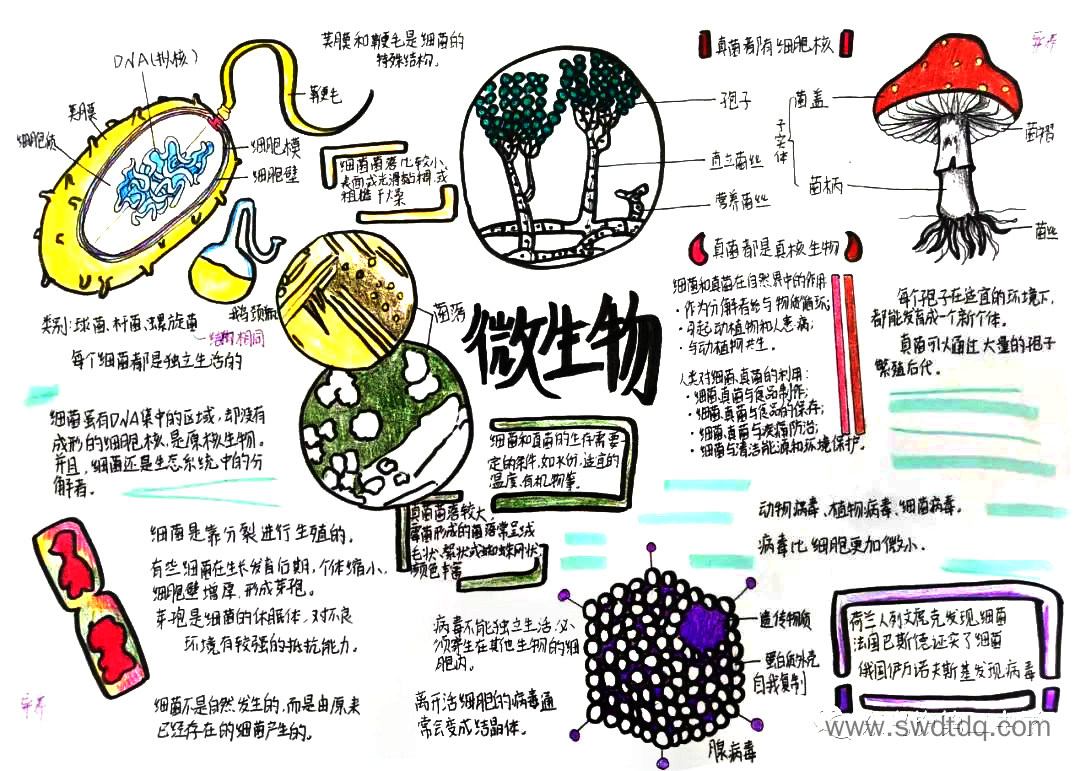 荚膜和鞭毛是细菌的
特殊结构。
DNA(拟核)
鞭毛
荚膜
细胞质
细胞模
细胞壁
细菌菌落比较小,
表面或光滑黏稠,或
粗糙干燥
鹅颈瓶
类别:球菌、杆菌、螺旋菌
结构相同
每个细菌都是独立生活的
细菌虽有DNA集中的区域,却没有
成形的细胞核,是原核生物。
并且,细菌还是生态系统中的分
解者。
菌落
微生物
孢子
直立菌丝
营养菌丝
真菌都有细胞核
菌盖
子实体
菌柄
菌褶
菌丝
真菌都是真核生物
细菌和真菌在自然界中的作用
·作为分解者参与物质循环;
·引起动植物和人患病;
·与动植物共生。
人类对细菌真菌的利用:
·细菌真菌与食品制作;
·细菌真菌与食品的保存;
·细菌真菌与疾病防治;
·细菌与清洁能源和环境保护。
每个孢子在适宜的环境下,
都能发育成一个新个体。
真菌可以通过大量的孢子
繁殖后代。
细菌和真菌的生存需要一
定的条件,如水份,适宜的
温度,有机物等。
真菌菌落较大,
霉菌形成的菌落常呈绒
毛状、絮状或蜘蛛网状
颜色丰富
细菌是靠分裂进行生殖的。
有些细菌在生长发育后期,个体缩小,
细胞壁增厚,形成芽孢。
芽孢是细菌的休眠体,对不良
环境有较强的抵抗能力。
细菌不是自然发生的,而是由原来
已经存在的细菌产生的。
病毒不能独立生活,必
须寄生在其他生物的细
胞内。
离开活细胞的病毒通
常会变成结晶体。
动物病毒、植物病毒、细菌病毒。
病毒比细胞更加微小.
遗传物质
蛋白质外壳
自我复制
腺病毒
荷兰人列文虎克发现细菌
法国巴斯德证实了细菌
俄国伊万诺夫斯基发现病毒
www.swdtdq.com